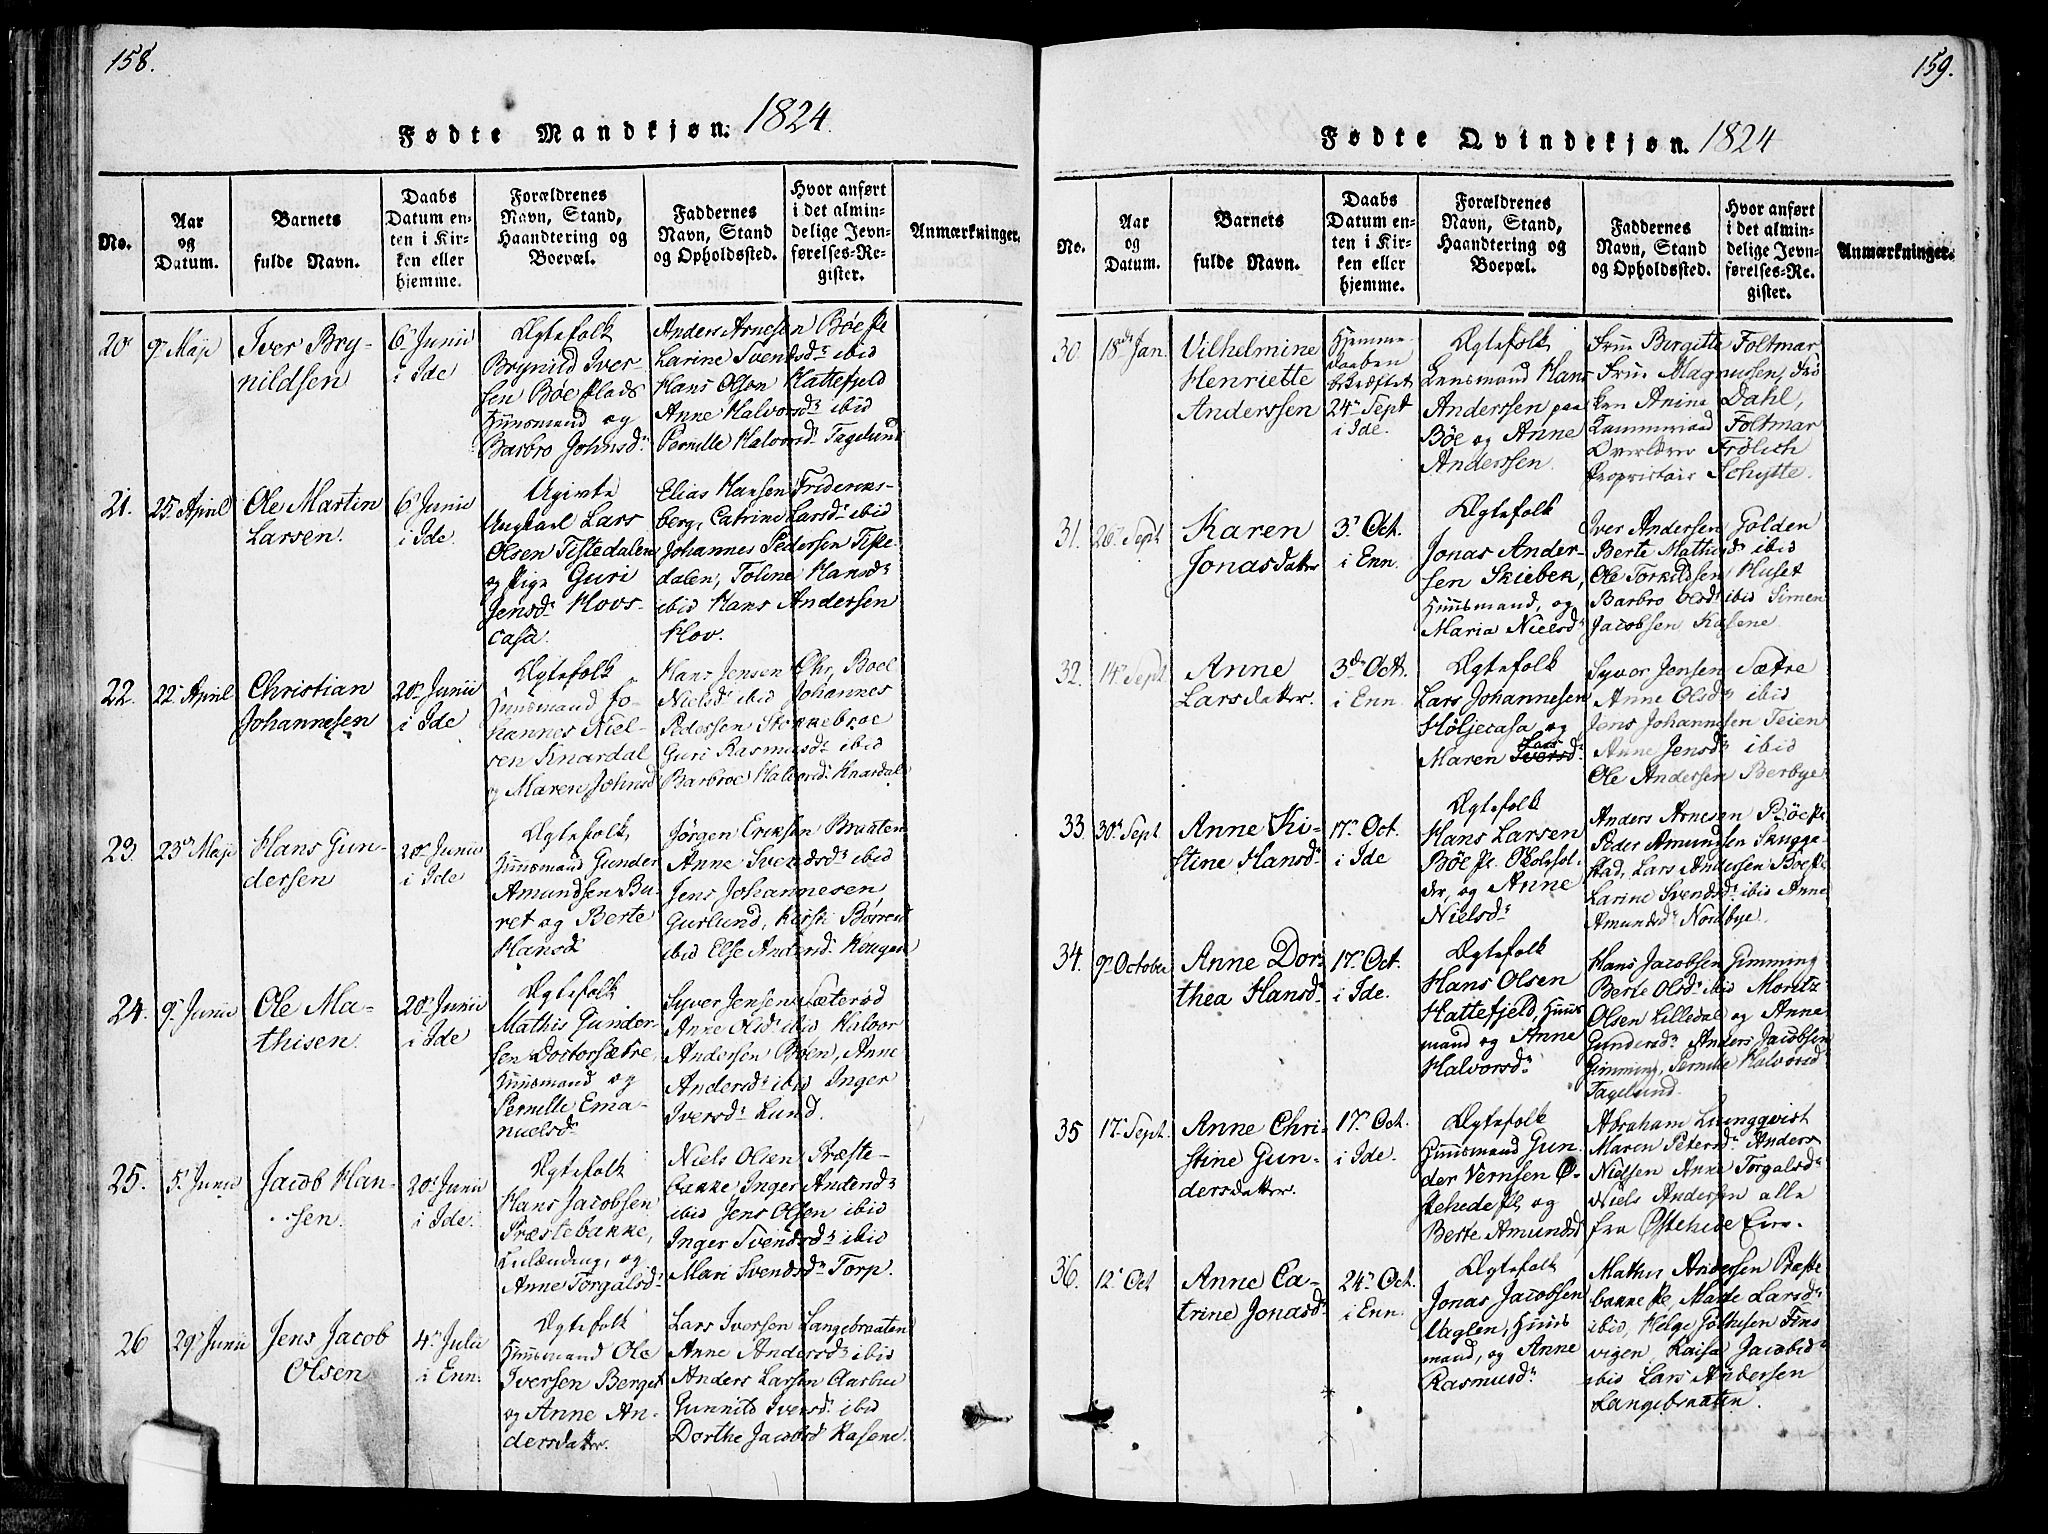 158.
Fødte Mandkjøn. 1824.
No.
Aar og Datum.
Barnets fulde Navn.
Daabs Datum enten i Kirken eller hjemme.
Forældrenes Navn, Stand, Haandtering og Boepæl.
Faddernes Navn, Stand og Opholdssted.
Hvor anført i det almindelige Jevnførelses-Register.
Anmærkninger.
20
9 Maji
Iver Bry-
nildsen
6 Junii
i Ide
Ægtefolk
Brynild Iver-
sen Böe Plads
Huusmand og
Barbro Johnsd.
Anders Arnesen Böe Pl
Larine Svendsd. ibid
Hans Olsen Hattefjeld
Anne Halvorsd. ibid
Pernille Halvorsd. Tagelund
21.
25 April
Ole Martin
Larsen.
6 Junii
i Ide.
Ugivte
Ungkarl Lars
Olsen Tistedalen
og Pige Guri
Jensd. Hovs-
casa.
Elias Hansen Frideriks-
berg, Catrine Larsd. ibid
Johannes Pedersen Tiste-
dalen, Toline Hansd.
ibid Hans Andersen
Hov.
22.
22 April
Christian
Johannesen
20 Junii
i Ide
Ægtefolk
Huusmand Jo-
hannes Niel-
sen Knardal
og Maren Johnsd
Hans Jensen Ohr, Boel
Nielsd. ibid Johannes
Pedersen Stokkebroe
Guri Rasmusd. ibid
Barbroe Halvorsd. Knardal
23.
23 Maji
Hans Gun-
dersen
20 Junii
i Ide
Ægtefolk,
Huusmand Gunder
Amundsen Bu-
ret og Berte
Hansd.
Jørgen Eriksen Braaten
Anne Svendsd. ibid
Jens Johannesen
Guslund, Kirsti
ibid Else Andersd.
24.
9 Junii
Ole Ma-
thisen.
20 Junii
i Ide
Ægtefolk
Mathis Gunder-
sen Doctorsætre,
Huusmand og
Pernille Ema-
nuelsd.
Syver Jensen Sæteröd
Anne Olsd. ibid Halvor
Andersen Böen, Anne
Andersd. ibid Inger
Iversd. Lund.
25.
5 Junii
Jacob Han-
sen.
20 Junii
i Ide.
Ægtefolk
Hans Jacobsen
Præstebakke,
og
Anne Torgalsd.
Niels Olsen Præste-
bakke Inger Andersd.
ibid Jens Olsen ibid
Inger Svendsd. ibid
Mari Svendsd. Torp.
26
29 Junii
Jens Jacob
Olsen
4 Julii
i Enn.
Ægtefolk
Huusmand Ole
Iversen Berget
og Anne An-
dersdatter.
Lars Iversen Langebraaten
Anne Andersd. ibid
Anders Larsen Aarbue
Gunnild Iversd. ibid
Dorthe Jacobsd Kasene.
159.
Fødte Qvindekjøn. 1824
No.
Aar og Datum.
Barnets fulde Navn.
Daabs Datum enten i Kirken eller hjemme.
Forældrenes Navn, Stand, Haandtering og Boepæl.
Faddernes Navn, Stand og Opholdssted.
Hvor anført i det almindelige Jevnførelses-Register.
Anmærkninger.
30.
18de Jan.
Vilhelmine
Henriette
Anderssen
Hjemme
daaben
bekræftet
24 Sept
i Ide.
Ægtefolk
Lensmand Hans
Anderssen paa
Böe og Anne
Anderssen.
Frue Birgitte Foltmar
Frue Magnussen, Frö
ken Anine Dahl,
Kammerraad Foltmar
Overlærer Frölich
Proprietair Schytte.
31.
26 Sept
Karen
Jonasdatter
3 Oct.
i Enn.
Ægtefolk
Jonas Ander-
sen Skiebek,
Huusmand, og
Maria Nielsd.
Iver Andersen Golden
Berte Mathisd. ibid
Ole Torkildsen Huset
Barbro Olsd. ibid Simen
Jacobsen Kasene.
32.
14 Sept
Anne
Larsdatter.
3de Oct.
i Enn.
Ægtefolk
Lars Johannesen
Höljecasa og
Lars
Maren Iversd.
Syver Jensen Sætre
Anne Olsd. ibid
Jens Johannesen Teien
Anne Jensd. ibid
Ole Andersen Berbye
33.
30 Sept.
Anne Ki-
stine Hansd.
17 Oct.
i Ide
Ægtefolk
Hans Larsen
Böe Pl. Skolehol-
der, og Anne
Nielsd.
Anders Arnesen Böe Pl
Peder Amundsen Skygge-
stad, Lars Andersen Böe Pl.
Larine Svendsd. ibid Anne
Amundsd. Nordbye.
34.
9 October
Anne Dor-
thea Hansd.
17 Oct.
i Ide.
Ægtefolk
Hans Olsen
Hattefjeld, Huus
mand og Anne
Halvorsd.
Hans Jacobsen Gimming
Berte Olsd. ibid Moritz
Olsen Lilledal og Anne
Gundersd. Anders Jacobsen
Gimming, Pernille Halvorsd.
Tagelund.
35
17 Sept.
Anne Chri-
stine Gun-
dersdatter.
17 Oct.
i Ide.
Ægtefolk
Huusmand Gun-
der Vernsen Ö-
stehede Pl. og
Berte Amundsd,
Abraham Lungqvist
Maren Petersd. Anders
Nielsen Anne Torgalsd.
Niels Andersen alle
fra Östehede Eier.
36.
12 Oct
Anne Ca-
trine Jonasd.
24 Oct.
i Enn.
Ægtefolk
Jonas Jacobsen
Vaglen, Huus
mand, og Anne
Rasmusd.
Mathis Andersen Præste
bakke Pl, Marte Larsd.
ibid, Helge Jölhesen Fins
vigen, Kaisa Jacobsd.
ibid Lars Andersen
Langebraaten.